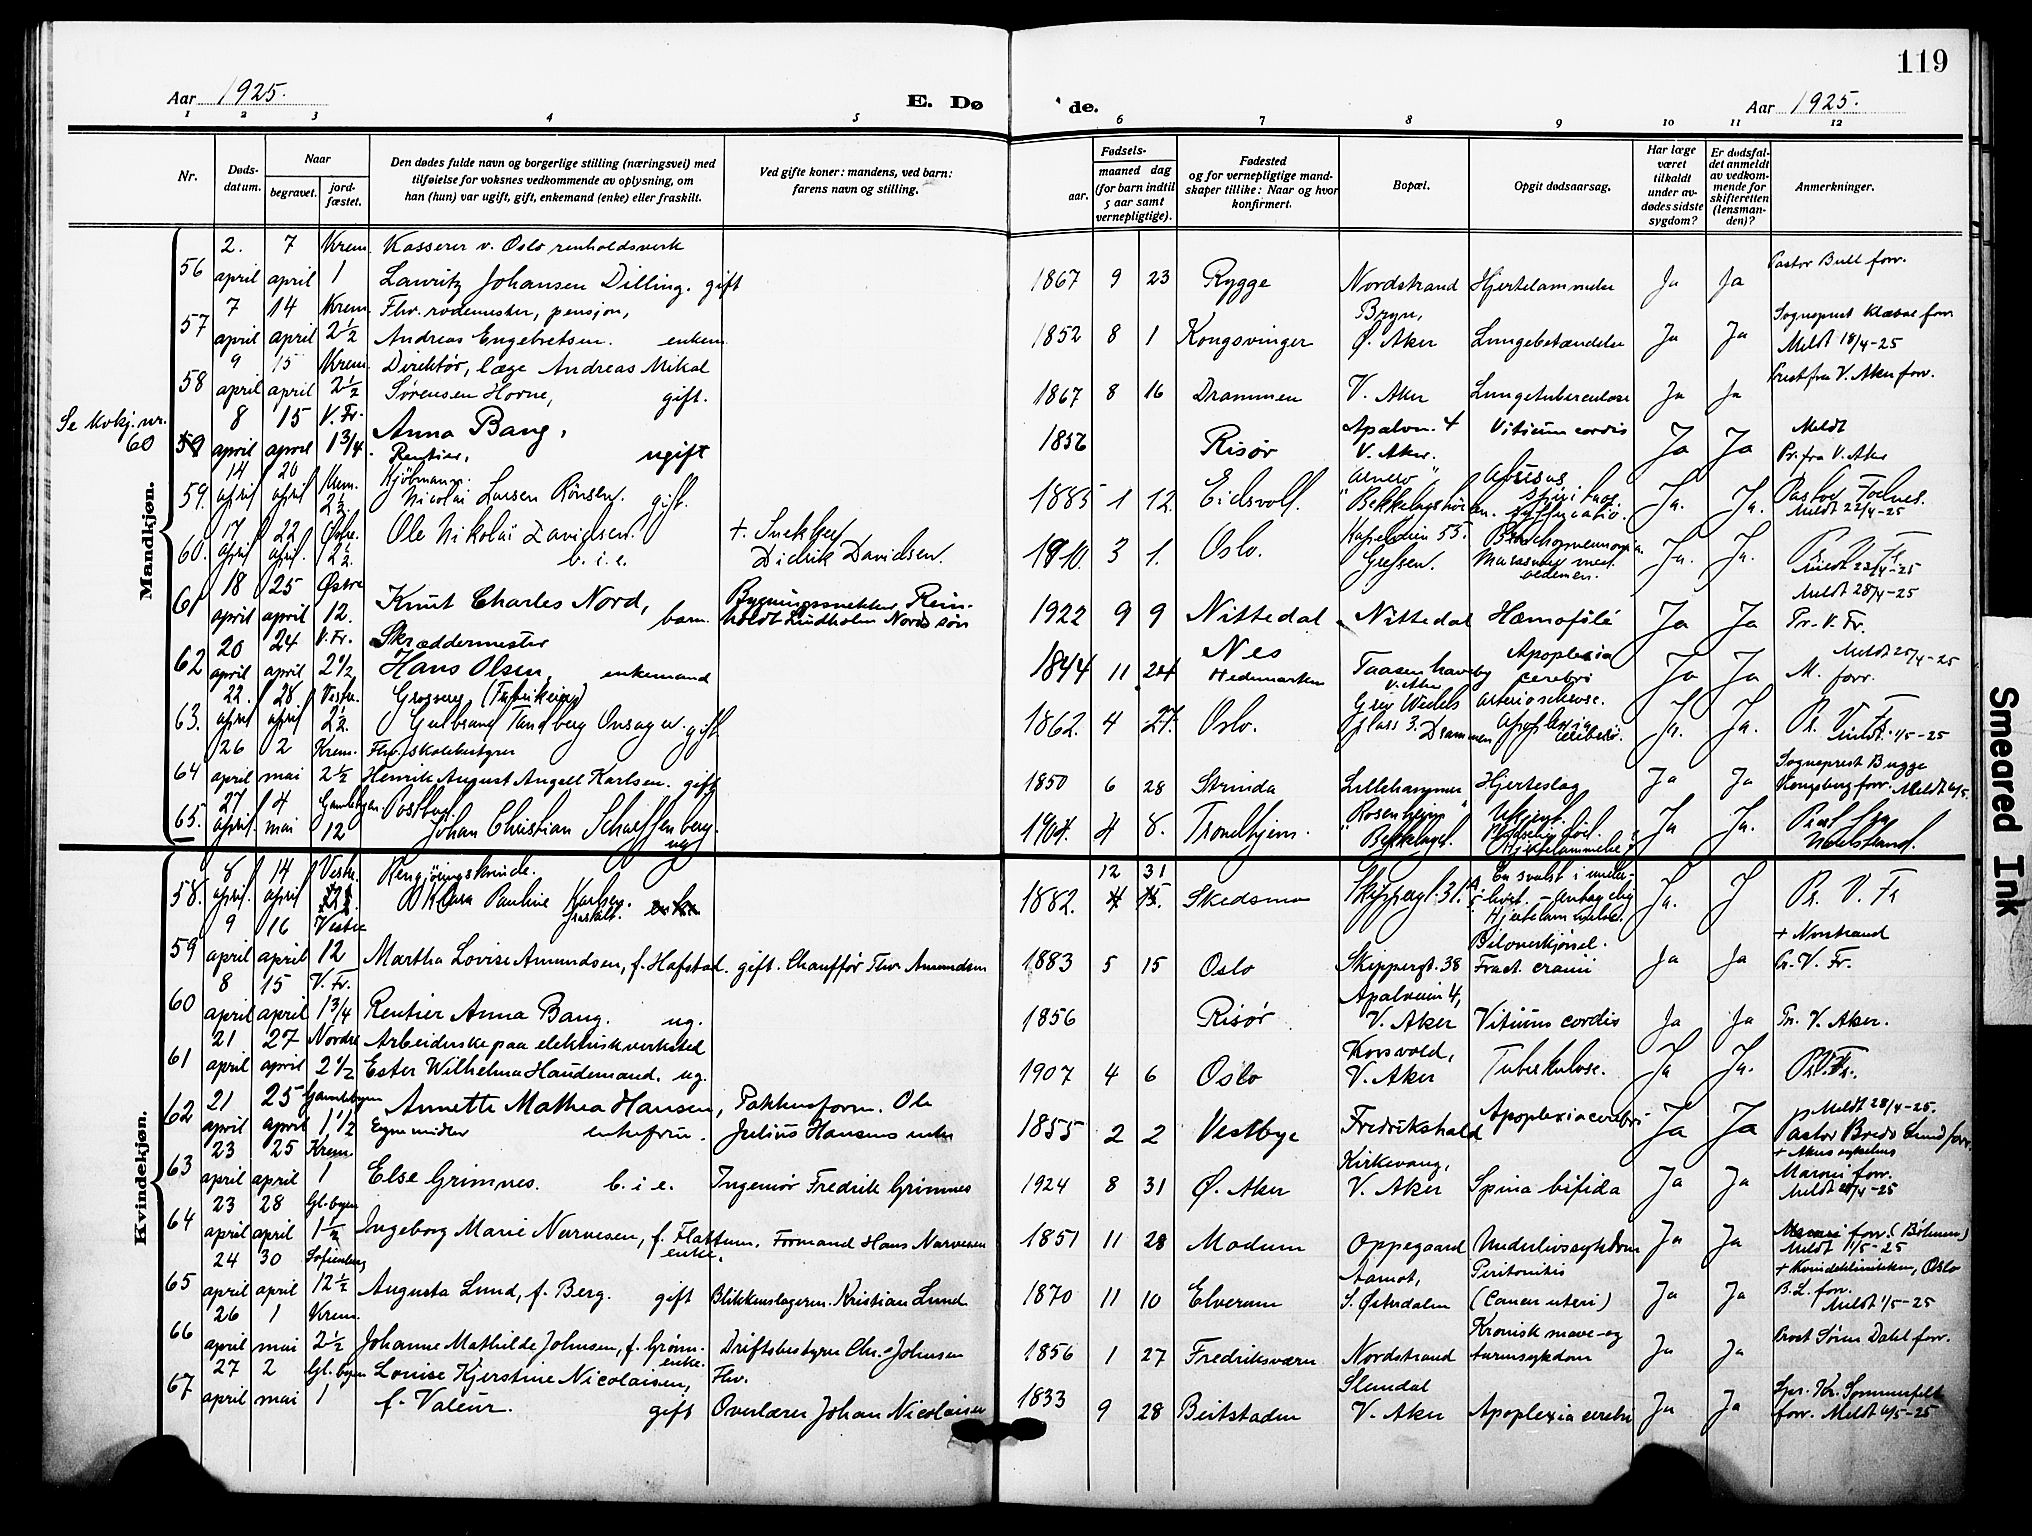 119
Aar 1925.
E. Dø de.
Aar 1925.
1 2 3 4 5 6 7 8 9 10 11 12
Nr.
Døds-
datum.
Naar
begravet.
jord-
fæstet.
Den dødes fulde navn og borgerlige stilling (næringsvei) med
tilføielse for voksnes vedkommende av oplysning, om
han (hun) var ugift, gift, enkemand (enke) eller fraskilt.
Ved gifte koner: mandens, ved barn:
farens navn og stilling.
Fødsels-
aar.
maaned dag
(for barn indtil
5 aar samt
vernepligtige).
Fødested
og for vernepligtige mand-
skaper tillike: Naar og hvor
konfirmert.
Bopæl.
Opgit dødsaarsag.
Har læge
været
tilkaldt
under av-
dødes sidste
sygdom?
Er dødsfal-
det anmeldt
av vedkom-
mende for
skifteretten
(lensman-
den)?
Anmerkninger.
Mandkjøn.
2. 7 Krem. Kasserer v. Oslo renholdsverk
56 april april 1 Lauritz Johansen Dilling. gift 1867 9 23 Rygge Nordstrand Hjertelammelse Ja Ja Pastor Bull forr.
7 14 Krem. Fhv. rodemester, pensjon, Bryn, Sogneprest Klævae forr
57 april april 2½ Andreas Engebretsen. enkem. 1852 8 1 Kongsvinger Ø. Aker Lungebetændelse Ja Ja Meldt 18/4-25
9 15 Krem. Direktør, læge Andreas Mikal
58 april april 2½ Sørensen Horne, gift. 1867 8 16 Drammen V. Aker Lungetuberculose Ja Ja Prest fra V. Aker forr.
Se kvkj. nr.
60
8 15 V. Fr. Anna Bang, Apalvn. 4 Vitium cordis Meldt
59 april april 1 3/4 Rentier, ugift 1856 Risør V. Aker. Ja Ja Pr. fra V. Aker
14 20 Krem. Kjøbmann. Abusus
59. april april 2½ Nicolai Larsen Rønsen. gift. 1885 1 12. Eidsvoll. Ja. Ja. Meldt 22/4-25
17 22 Østre. Ole Nikolai Davidsen. + Snekker 55. Bronchopneumonia
60. april april 2½. b. i. e. Didrik Davidsen. 1910. 3 1. Oslo. Grefsen. Ja. Ja. Meldt 22/4-25
18 25 Østre Bygningssnekker Rein- Meldt 28/4-25
61 april april 12. Knut Charles Nord, barn. holdt Lindholm Nords søn 1922 9 9 Nittedal Nittedal Hæmofili Ja Ja Pr. V. Fr.
20 24 V. Fr. Skræddermester Nes Apoplexia Meldt 25/4-25
62 april april 2½ Hans Olsen, enkemand 1844 11 24 Hedemarken Taasen haveby V. Aker cerebri Ja Ja M. forr.
22. 28. Vestre. Grosserer Grev Wedels arteriosclerose.
63. april april 2½. Gulbrand Tandberg Onsager. gift 1862. 4 27. Oslo. plass 3. Drammen Apoplexia cerebri. Ja. Ja. Pr. V. Fr. Meldt 1/5-25
26 2 Krem. Fhv. skolebestyrer Sogneprest Bugge
64 april mai 2½ Henrik August Angell Karlsen. gift 1850 6 28 Strinda Lillehammer Hjerteslag Ja Ja Kongsberg forr. Meldt 4/5.
27 4 Gamlebyen Postbud.
65. april. mai 12 Johan Christian Scharffenberg. ug 1904. 4 8. Trondhjem. Bekkelaget. Hjertelammelse? Ja Ja.
Kvindekjøn.
8 14 Vestre. Rengjøringskvinde. 12 31 En svulst i under-
58. april. april Klara Pauline Karlsen. fraskilt. enke 1882. 4 15. Skedsmo Skippergt. 31. livet. - antagelig Hjertelammelse. Ja. J Pr. V. Fr
9 16 Vestre Bilovkjørsel. + Norstrand
59 april april 12 Martha Lovise Amundsen, f. Hafstad. gift. Chauffør Thv. Amundsen 1883 5 15 Oslo Skippergt. 38 Fract. cranii Ja Ja Pr. V. Fr.
8 15 V. Fr. Apalveien 4,
60 april april 1 3/4 Rentier Anna Bang. ug. 1856 Risør V. Aker Vitium cordis Ja Ja Pr. V. Aker.
21 27 Nordre Arbeiderske paa elektrisk verksted Korsvold,
61 april april 2½ Ester Wilhelmina Haudemand. ug. 1907 4 6 Oslo V. Aker Tuberkulose. Ja Ja. Pr. V. Fr.
21 25 Gamlebyen Annette Mathea Hansen, Pakhusform. Ole Meldt 28/4-25.
62 april april 1½ Egne midler enkefrue. Julius Hansens enke 1855 2 2 Vestbye Fredrikshald Apoplexia cerebri Ja Ja Pastor Bredo Lund forr.
23 25 Krem. Kirkevang, + Akers sykehus
63 april april 1 Else Grimnes. b. i. e. Ingeniør Fredrik Grimnes 1924 8 31 Ø. Aker V. Aker Spina bifida Ja Ja Maroni forr. Meldt 28/4-25
23 28 Gl. byen
64 april april 1½ Ingeborg Marie Narvesen, f. Flattum. enke. Formand Hans Narvesen 1851 11 28 Modum Oppegaard Underlivssykdom Ja Ja forr. (Bølmen) Meldt 1/5-25
24 30 Sofienberg Aamot, Peritonitis + Kvindeklinikken, Oslo
65 april april 12½ Augusta Lund, f. Berg. gift Blikkenslagerm. Kristian Lund 1870 11 10 Elverum S. Østerdalen (Cancer uteri) Ja Ja B. L. forr. Meldt 1/5-25
26 1 Krem. Kronisk mave- og
66 april mai 2½ Johanne Mathilde Johnsen, f. Grønn. enke. Driftsbestyrer Chr. Johnsen 1856 1 27 Fredriksværn Nordstrand tarmsykdom Ja Ja Prost Søren Dahl forr.
27 2 Gl. byen Louise Kjerstine Nicolaisen, Fhv. Slemdal Spr. Kr. Sommerfelt
67 april mai 1 f. Valeur. gift Overlærer Johan Nicolaisen 1833 9 28 Beitstaden V. Aker Apoplexia cerebri Ja Ja forr. Meldt 4/5-25
Smeared Ink